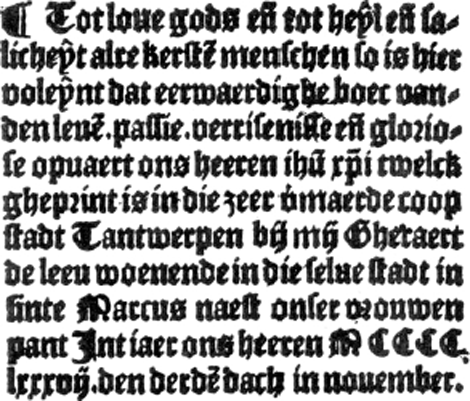 ¶ Tot loue gods eñ tot heyl eñ sa⸗
licheyt alre kerstē menschen so is hier
voleynt dat eerwaerdighe boec van⸗
den leuē. passie. verrisenisse eñ glorio⸗
se opuaert ons heeren ihū xp̄i twelck
gheprint is in die zeer vmaerde coop
stadt Tantwerpen bij mij Gheraert
de leeu woenende in die selue stadt in
sinte Marcus naest onser vrouwen
pant Int iaer ons heeren M CCCC.
lxxxvij. den derdē dach in nouember.